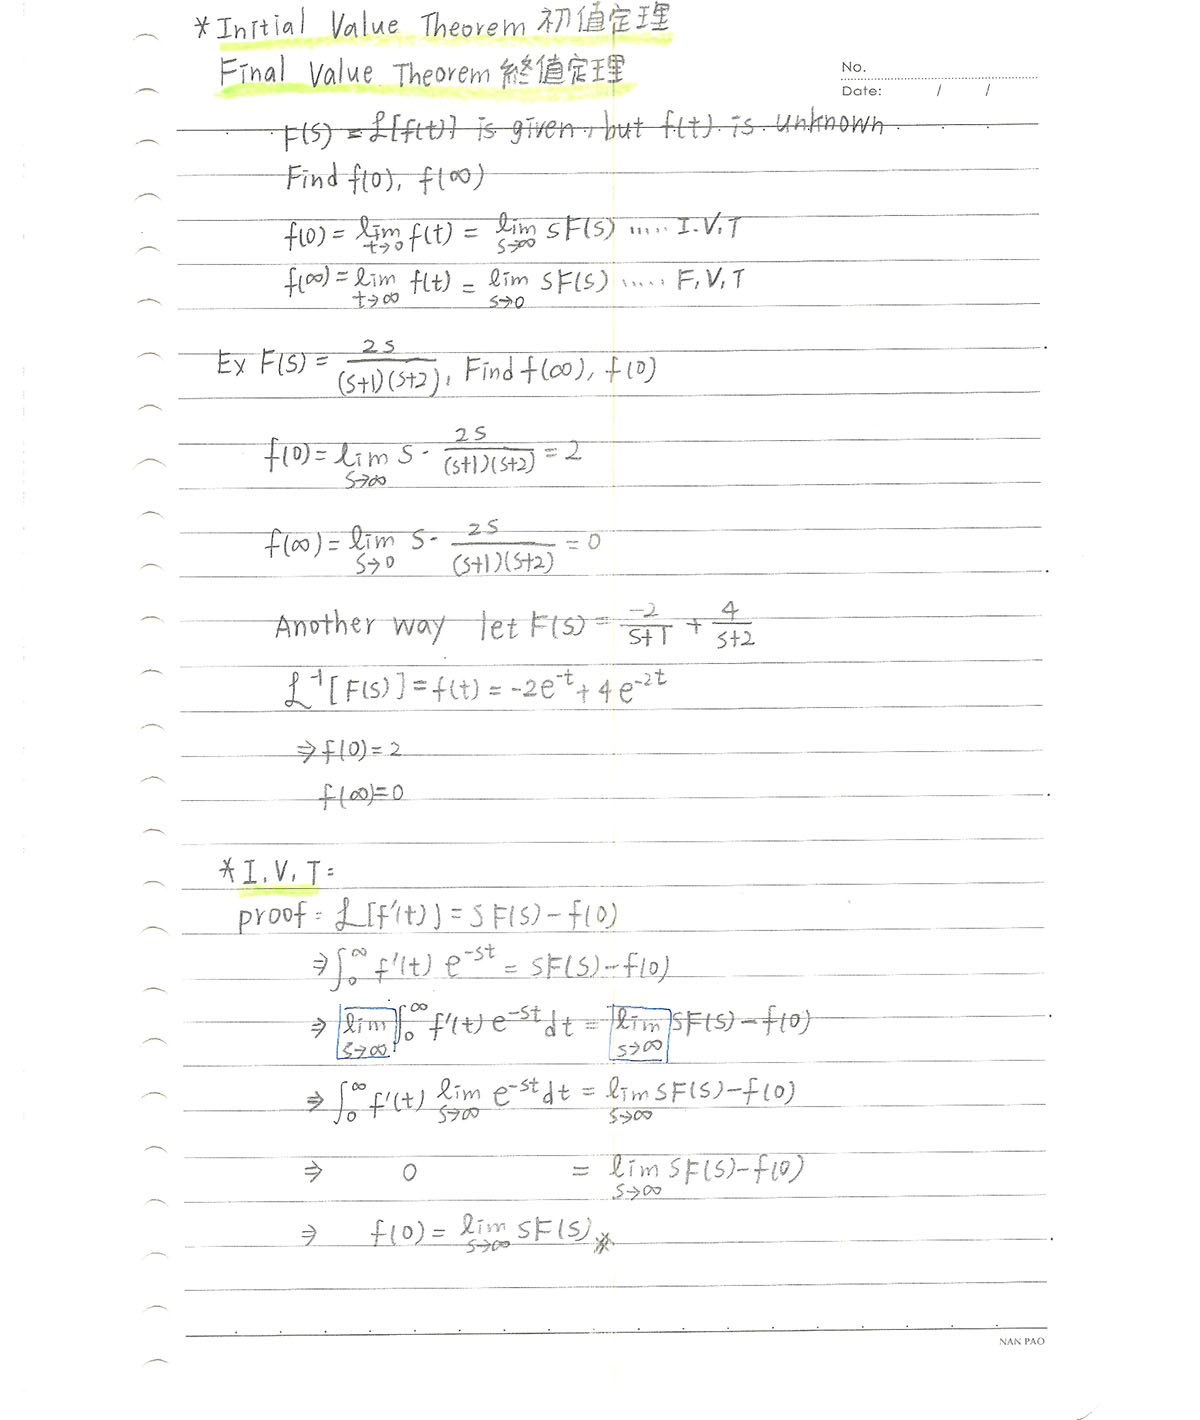 *Initial Value Theorem 初值定理
Final Value Theorem 終值定理
No.
Date: / /
F(s) = ℒ[f(t)] is given, but f(t) is unknown
Find f(0), f(∞)
f(0) = lim t→0 f(t) = lim s→∞ sF(s) ..... I.V.T
f(∞) = lim t→∞ f(t) = lim s→0 sF(s) ..... F.V.T
Ex F(s) = 2s/((s+1)(s+2)), Find f(∞), f(0)
f(0) = lim s→∞ s · 2s/((s+1)(s+2)) = 2
f(∞) = lim s→0 s · 2s/((s+1)(s+2)) = 0
Another way let F(s) = -2/(s+1) + 4/(s+2)
ℒ⁻¹[F(s)] = f(t) = -2e^-t + 4e^-2t
⇒ f(0) = 2
f(∞) = 0
*I.V.T:
proof: ℒ[f'(t)] = sF(s) - f(0)
⇒ ∫₀^∞ f'(t) e^-st = sF(s) - f(0)
⇒ lim s→∞ ∫₀^∞ f'(t) e^-st dt = lim s→∞ sF(s) - f(0)
⇒ ∫₀^∞ f'(t) lim s→∞ e^-st dt = lim s→∞ sF(s) - f(0)
⇒ 0 = lim s→∞ sF(s) - f(0)
⇒ f(0) = lim s→∞ sF(s) ※
NAN PAO